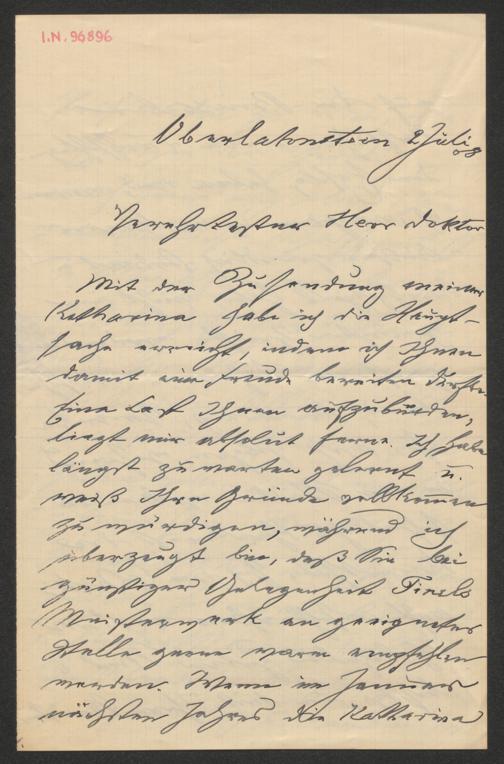 I.N. 96896
Oberlahnstein 2 Juli
08
Verehrtester Herr Doktor
Mit der Zusendung meiner
Katharina habe ich die Haupt-
sache erreicht, indem ich Ihnen
damit eine Freude bereiten durfte.
Eine Last Ihnen aufzubürden,
liegt mir absolut ferne. Ich habe
längst zu warten gelernt u.
weiß Ihre Gründe vollkommen
zu würdigen, während ich
überzeugt bin, daß Sie bei
günstiger Gelegenheit Tinels
Meisterwerk an geeigneter
Stelle gerne warm empfehlen
werden. Wenn im Januar
nächsten Jahres die Katharina